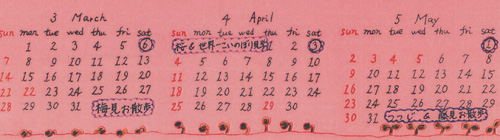 3 March
sun mon tue wed thu fri sat
1 2 3 4 5 6
7 8 9 10 11 12 13
14 15 16 17 18 19 20
21 22 23 24 25 26 27
28 29 30 31 梅見お散歩
4 April
sun mon tue wed thu fri sat
& 世界一こいのぼり見学 1 2 3
4 5 6 7 8 9 10
11 12 13 14 15 16 17
18 19 20 21 22 23 24
25 26 27 28 29 30
5 May
sun mon tue wed thu fri sat
1
2 3 4 5 6 7 8
9 10 11 12 13 14 15
16 17 18 19 20 21 22
23 24 25 26 27 28 29
30 31 つつじ & 藤見お散歩